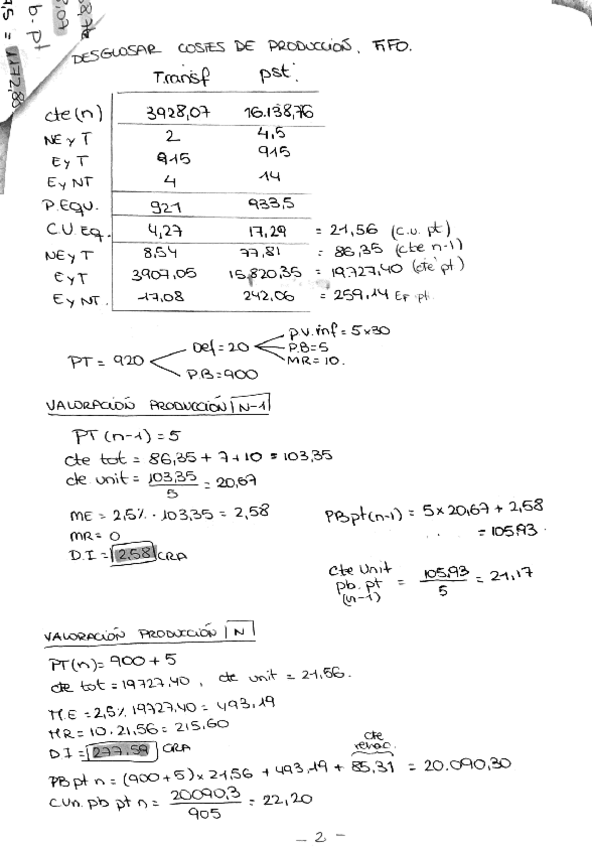 DESGLOSAR COSTES DE PRODUCCIÓN. FIFO.
Transf pst.
cte(n) 3928,07 16.138,76
NE y T 2 4,5
E y T 915 915
E y NT 4 14
P. EQU. 921 933,5
C.U EQ. 4,27 17,29 = 21,56 (c.u. pt)
NE y T 8,54 77,81 = 86,35 (cte n-1)
E y T 3907,05 15.820,35 = 19.727,40 (cte pt)
E y NT. 17,08 242,06 = 259,14 Ef pt.
PT = 920
Def = 20
P.B = 900
p.v. inf = 5x30
P.B = 5
MR = 10.
VALORACIÓN PRODUCCIÓN N-1
PT (n-1) = 5
cte tot = 86,35 + 7 + 10 = 103,35
cte unit = 103,35 / 5 = 20,67
ME = 2,5% · 103,35 = 2,58
MR = 0
D.I = 2,58 CRA
PB pt (n-1) = 5 x 20,67 + 2,58
= 105,93.
cte unit pb. pt (n-1) = 105,93 / 5 = 21,17
VALORACIÓN PRODUCCIÓN N
PT(n) = 900 + 5
cte tot = 19727,40, cte unit = 21,56.
M.E = 2,5% 19727,40 = 493,19
MR = 10 · 21,56 = 215,60
D.I = 277,59 CRA
cte
PB pt n = (900+5) x 21,56 + 493,19 + 85,31 = 20.090,30
C.un. pb pt n = 20090,3 / 905 = 22,20
- 2 -
b. pt
= 1172,88